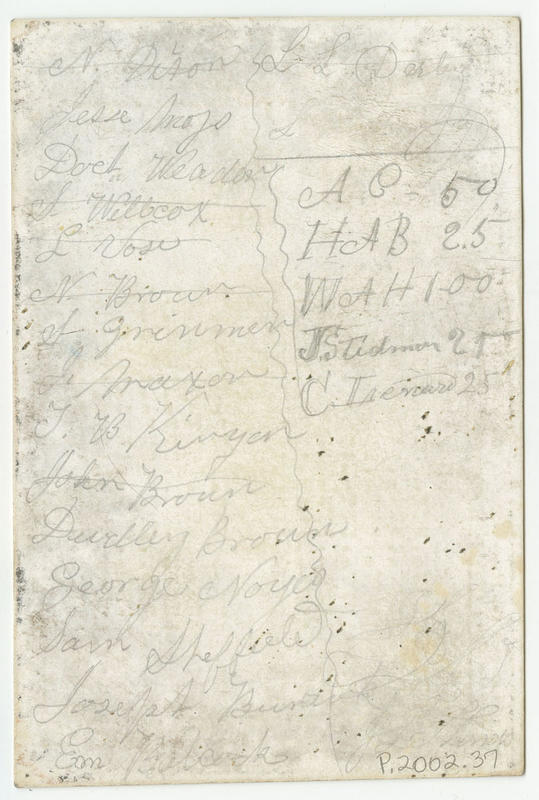 N. Dixon
Jesse Mojo
Doct Weadon
S Willcox
L Vose
N. Brown
Grinmen
Maxon
T. B Kinyon
John Brown
Dudley Brown
George Noyes
Sam Sheffield
Joseph
Em
L L Derby
L
A C - 50
HAB 25
WAH 1.00
J. Stedman 25
C. 25
P.2002.37